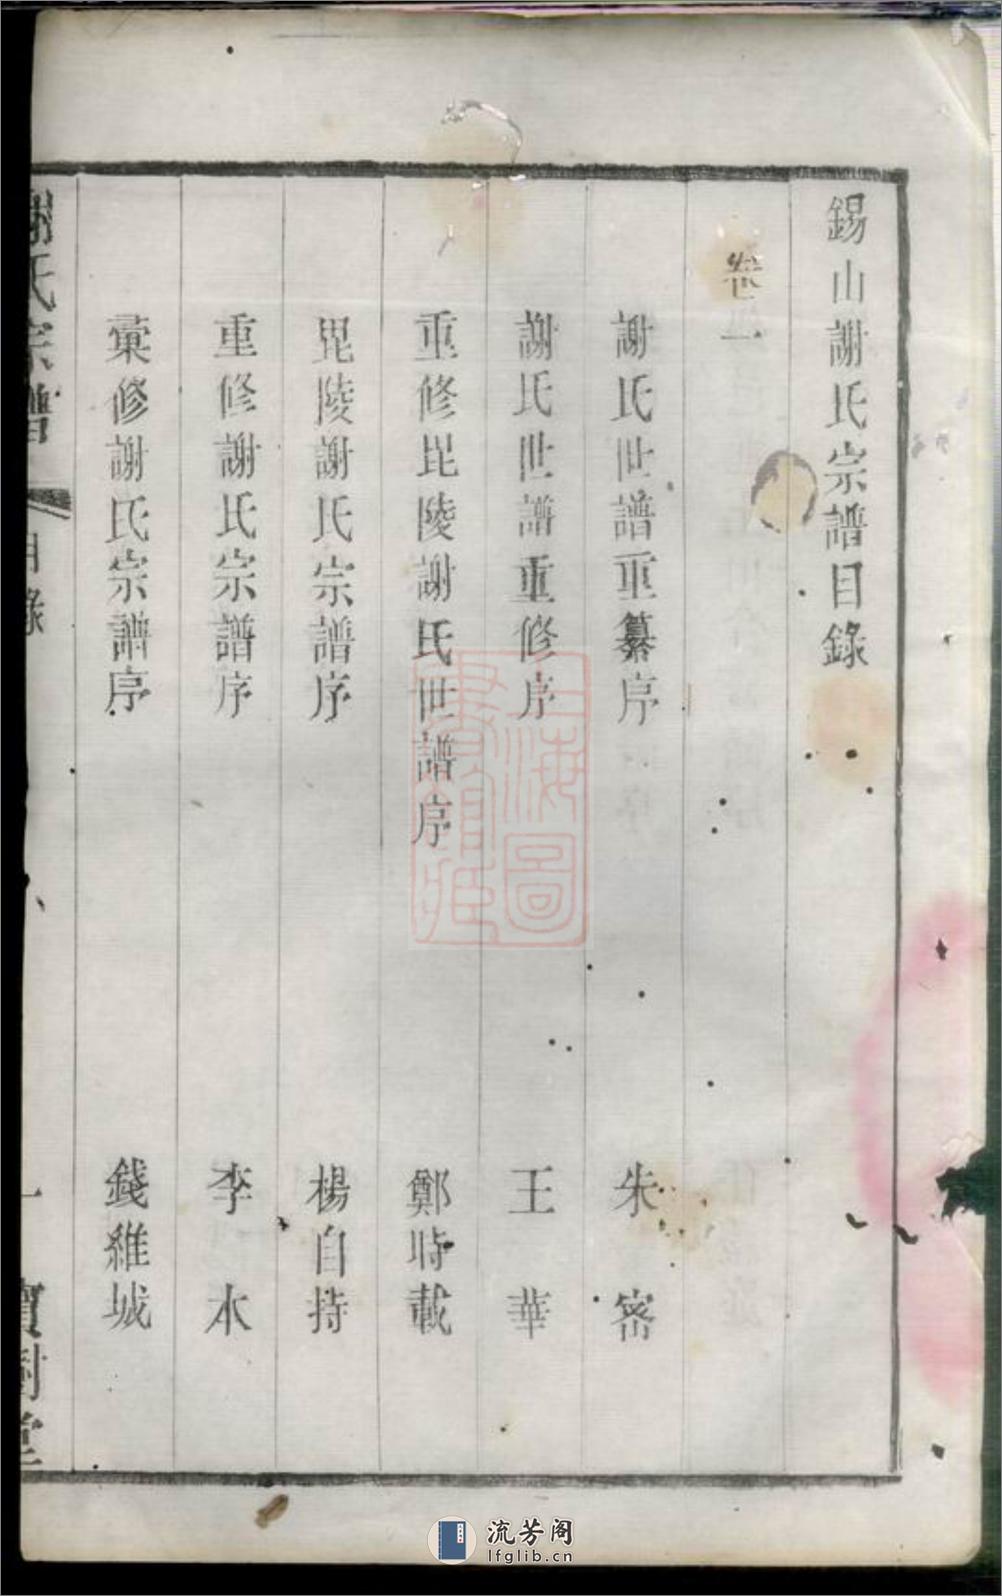 錫山謝氏宗譜目錄
卷一
謝氏世譜重纂序 朱密
謝氏世譜重修序 王華
重修毘陵謝氏世譜序 鄭時載
毘陵謝氏宗譜序 楊自持
重修謝氏宗譜序 李本
彙修謝氏宗譜序 錢維城
謝氏宗譜 目錄 一 寶樹堂
上海圖書館藏
流芳阁
lfglib.cn